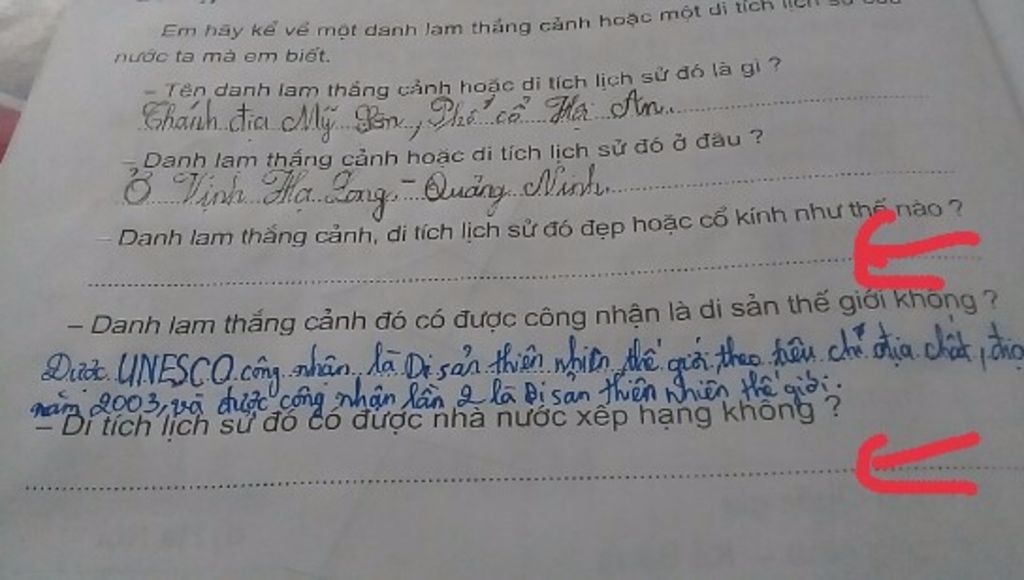 Em hãy kể về một danh lam thắng cảnh hoặc một di tích lịch sử của
nước ta mà em biết.
– Tên danh lam thắng cảnh hoặc di tích lịch sử đó là gì ?
Thánh địa Mỹ Sơn, Phố cổ Hội An.
– Danh lam thắng cảnh hoặc di tích lịch sử đó ở đâu ?
Ở Vịnh Hạ Long - Quảng Ninh.
– Danh lam thắng cảnh, di tích lịch sử đó đẹp hoặc cổ kính như thế nào ?
– Danh lam thắng cảnh đó có được công nhận là di sản thế giới không ?
Được UNESCO công nhận là Di sản thiên nhiên thế giới theo tiêu chí địa chất,
năm 2003, và được công nhận lần 2 là Di sản thiên nhiên thế giới.
– Di tích lịch sử đó có được nhà nước xếp hạng không ?